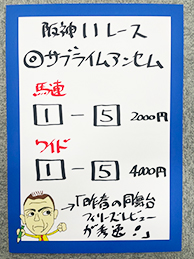 阪神11レース
◎サブライムアンセム
馬連
1-5 2000円
ワイド
1-5 4000円
→「昨春の同舞台
フィリーズレビュー
が秀逸!」